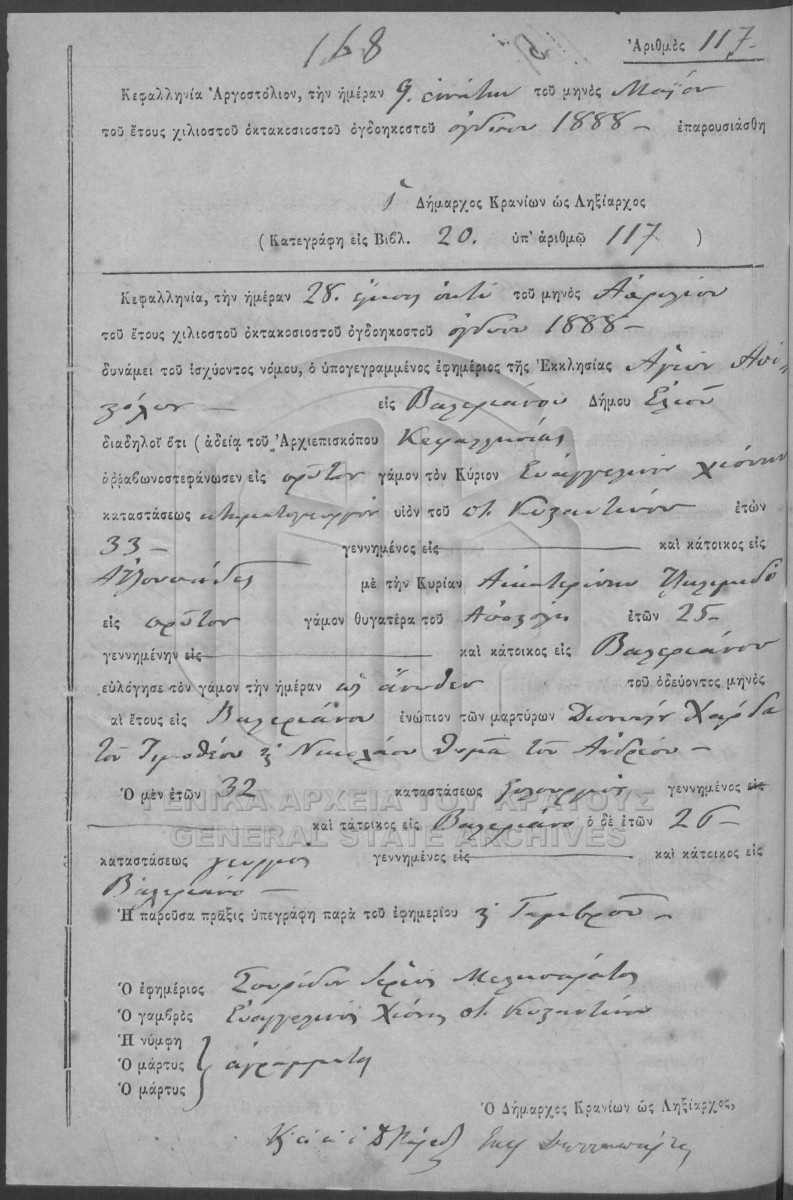 168
Ἀριθμὸς 117-
Κεφαλληνία Ἀργοστόλιον, τὴν ἡμέραν 9. ἐννάτην τοῦ μηνὸς Μαΐου
τοῦ ἔτους χιλιοστοῦ ὀκτακοσιοστοῦ ὀγδοηκοστοῦ ὀγδόου 1888 — ἐπαρουσιάσθη
ὁ Δήμαρχος Κρανίων ὡς Ληξίαρχος
(Κατεγράφη εἰς Βιβλ. 20. ὑπ' ἀριθμῷ 117)
Κεφαλληνία, τὴν ἡμέραν 28. εἴκοσι ὀκτὼ τοῦ μηνὸς Ἀπριλίου
τοῦ ἔτους χιλιοστοῦ ὀκτακοσιοστοῦ ὀγδοηκοστοῦ ὀγδόου 1888 —
δυνάμει τοῦ ἰσχύοντος νόμου, ὁ ὑπογεγραμμένος ἐφημέριος τῆς Ἐκκλησίας Ἁγίων Ἀπο-
στόλων — εἰς Βαλεριάνου Δήμου Ἐλιοῦ
διαδηλοῖ ὅτι (ἀδείᾳ τοῦ Ἀρχιεπισκόπου Κεφαλληνίας
ἀρραβωνοστεφάνωσεν εἰς πρῶτον γάμον τὸν Κύριον Εὐαγγελινὸν Χιόνην
καταστάσεως κτηματογεωργὸν υἱὸν τοῦ ποτ. Κωσταντίνου ἐτῶν
33 — γεννημένος εἰς — καὶ κάτοικος εἰς
μὲ τὴν Κυρίαν Αἰκατερίνην
εἰς πρῶτον γάμον θυγατέρα τοῦ Ἀποστόλη ἐτῶν 25-
γεννημένην εἰς — καὶ κάτοικος εἰς Βαλεριάνου
εὐλόγησε τὸν γάμον τὴν ἡμέραν ὡς ἄνωθεν τοῦ ὁδεύοντος μηνὸς
αὶ ἔτους εἰς Βαλεριάνου ἐνώπιον τῶν μαρτύρων Διονυσίου
τοῦ Τιμοθέου καὶ Νικολάου Θωμᾶ τοῦ Ἀνδρέου —
Ὁ μὲν ἐτῶν 32 καταστάσεως ξυλουργὸς γεννημένος εἰς
— καὶ τάτοικος εἰς Βαλεριάνο ὁ δὲ ἐτῶν 26 —
καταστάσεως γεωργὸς γεννημένος εἰς — καὶ κάτοικος εἰς
Βαλεριάνο —
Ἡ παροῦσα πρᾶξις ὑπεγράφη παρὰ τοῦ ἐφημερίου καὶ Γαμβροῦ —
Ὁ ἐφημέριος Σπυρίδων Ἱερεὺς
Ὁ γαμβρὸς Εὐαγγελινὸς Χιόνης ποτ. Κωσταντίνου
Ἡ νύμφη
Ὁ μάρτυς ἀγράμματοι
Ὁ μάρτυς
Ὁ Δήμαρχος Κρανίων ὡς Ληξίαρχος,
ΓΕΝΙΚΑ ΑΡΧΕΙΑ ΤΟΥ ΚΡΑΤΟΥΣ
GENERAL STATE ARCHIVES